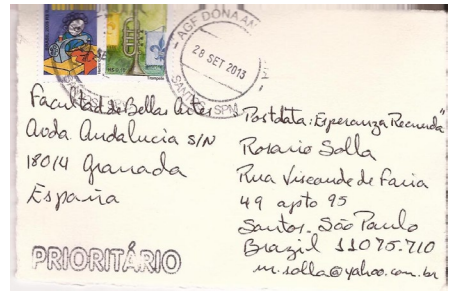 AGF DONA AN
28 SET 2013
SANTOS SPM
Facultad de Bellas Artes
Avda. Andalucia S/N
18014 Granada
España
PRIORITÁRIO
Postdata: Esperanza Recuerda"
Rosario Solla
Rua Visconde de Faria
49 apto 95
Santos - São Paulo
Brazil 11075-710
m.solla@yahoo.com.br